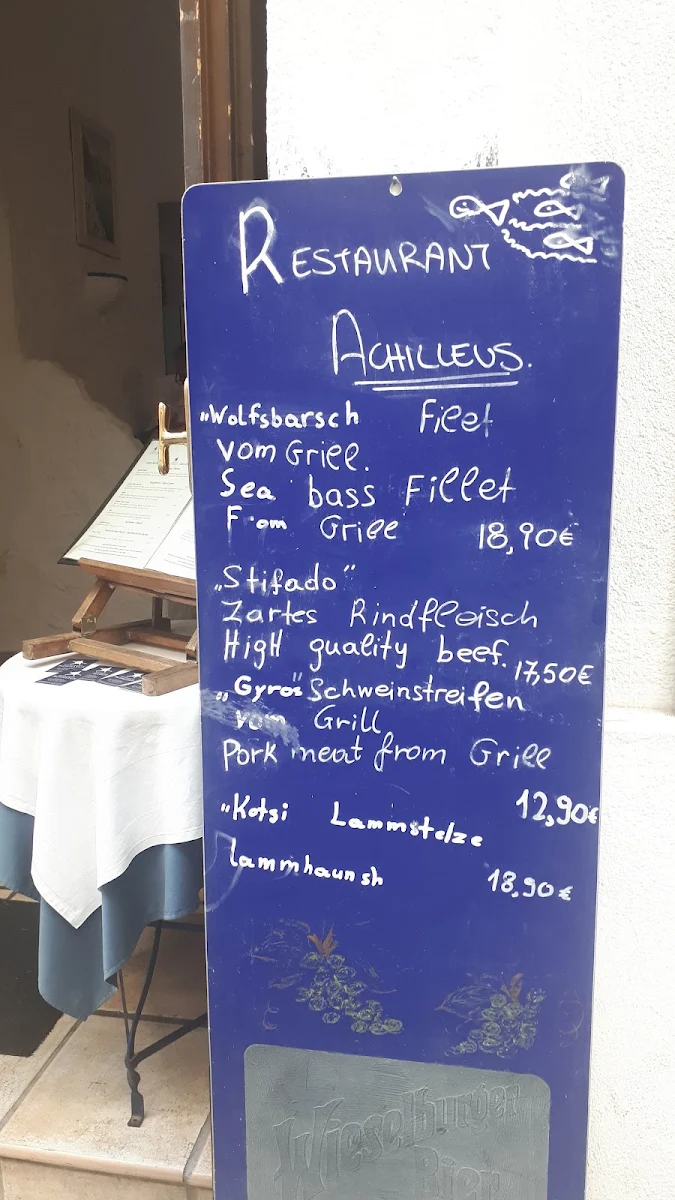 RESTAURANT
ACHILLEUS.
„Wolfsbarsch Filet
vom Grill.
Sea bass Fillet
From Grill 18,90€
„Stifado"
Zartes Rindfleisch
HigH quality beef.
17,50€
„Gyros" Schweinstreifen
vom Grill
Pork meat from Grill
12,90€
„Kotsi Lammstelze
lammhaunsh 18,90€
Wieselburger
Bier